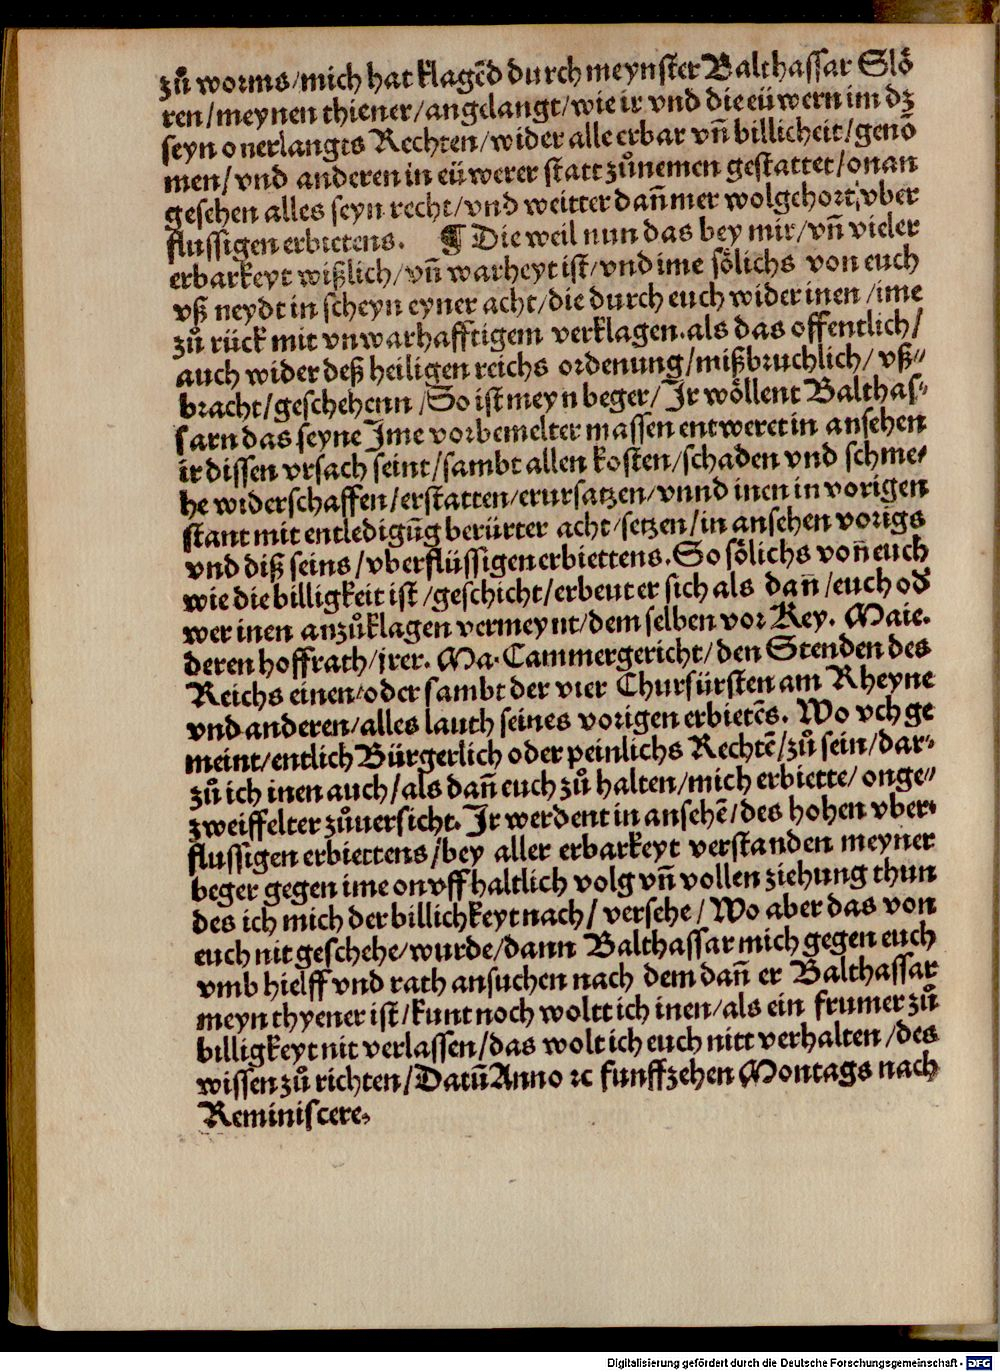 zů worms/mich hat klagēd durch meynster Balthassar Slö
ren/meynen thiener/angelangt/wie ir vnd die eüwern im dz
seyn onerlangts Rechten/wider alle erbar vn̄ billicheit/genō
men/vnd anderen in eüwerer statt zůnemen gestattet/onan
gesehen alles seyn recht/vnd weitter dan̄mer wolgehort/vber
flussigen erbietens. ¶ Die weil nun das bey mir/vn̄ vieler
erbarkeyt wißlich/vn̄ warheyt ist/vnd ime sölichs von euch
vß neydt in scheyn eyner acht/die durch euch wider inen/ime
zů rück mit vnwarhafftigem verklagen.als das offentlich/
auch wider deß heiligen reichs ordenung/mißbruchlich/vß⸗
bracht/geschehenn/So ist meyn beger/Ir wöllent Balthas⸗
sarn das seyne Ime vorbemelter massen entweret in ansehen
ir dissen vrsach seint/sambt allen kosten/schaden vnd schme⸗
he widerschaffen/erstatten/erursatzen/vnnd inen in vorigen
stant mit entledigūg berürter acht/setzen/in ansehen vorigs
vnd diß seins/vberflüssigen erbiettens. So sölichs von̄ euch
wie die billigkeit ist/geschicht/erbeut er sich als dan̄/euch od
wer inen anzůklagen vermeynt/dem selben vor Key. Maie.
deren hoffrath/jrer. Ma. Cammergericht/den Stenden des
Reichs einen/oder sambt der vier Churfürsten am Rheyne
vnd anderen/alles lauth seines vorigen erbietēs. Wo vch ge
meint/entlich Bürgerlich oder peinlichs Rechtē/zů sein/dar⸗
zů ich inen auch/als dan̄ euch zů halten/mich erbiette/onge⸗
zweiffelter zůuersicht. Ir werdent in ansehē/des hohen vber⸗
flussigen erbiettens/bey aller erbarkeyt verstanden meyner
beger gegen ime onvffhaltlich volg vn̄ vollen ziehung thun
des ich mich der billichkeyt nach/versehe/Wo aber das von
euch nit geschehe/wurde/dann Balthassar mich gegen euch
vmb hielff vnd rath ansuchen nach dem dan̄ er Balthassar
meyn thyener ist/kunt noch woltt ich inen/als ein frumer zů
billigkeyt nit verlassen/das wolt ich euch nitt verhalten/des
wissen zů richten/Datū Anno ꝛc funffzehen Montags nach
Reminiscere.
Digitalisierung gefördert durch die Deutsche Forschungsgemeinschaft - DFG